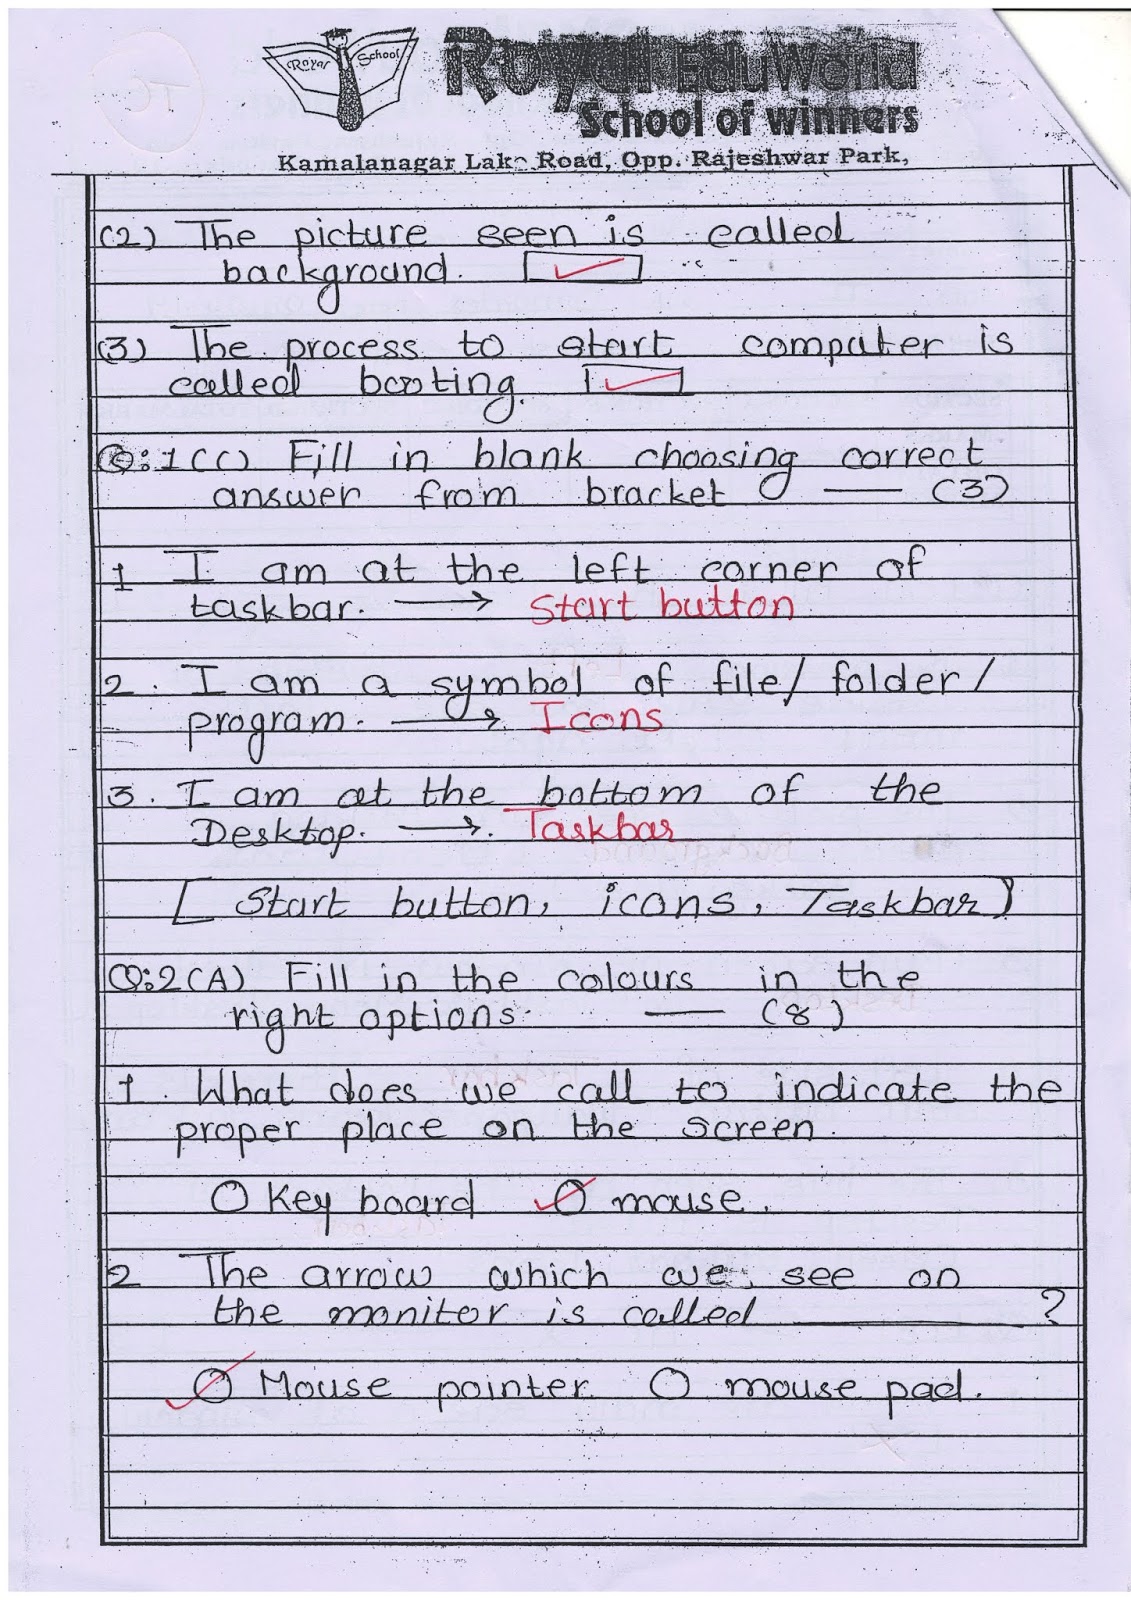 Royal School
Royal EduWorld
School of winners
Kamalanagar Lake Road, Opp. Rajeshwar Park,
(2) The picture seen is called
background.
(3) The process to start computer is
called booting.
Q:1(C) Fill in blank choosing correct
answer from bracket — (3)
1 I am at the left corner of
taskbar. → Start button
2. I am a symbol of file/folder/
program. → Icons
3. I am at the bottom of the
Desktop. → Taskbar
[Start button, icons, Taskbar]
Q:2(A) Fill in the colours in the
right options. — (8)
1. What does we call to indicate the
proper place on the screen.
Key board mouse.
2 The arrow which we see on
the monitor is called ______ ?
Mouse pointer mouse pad.